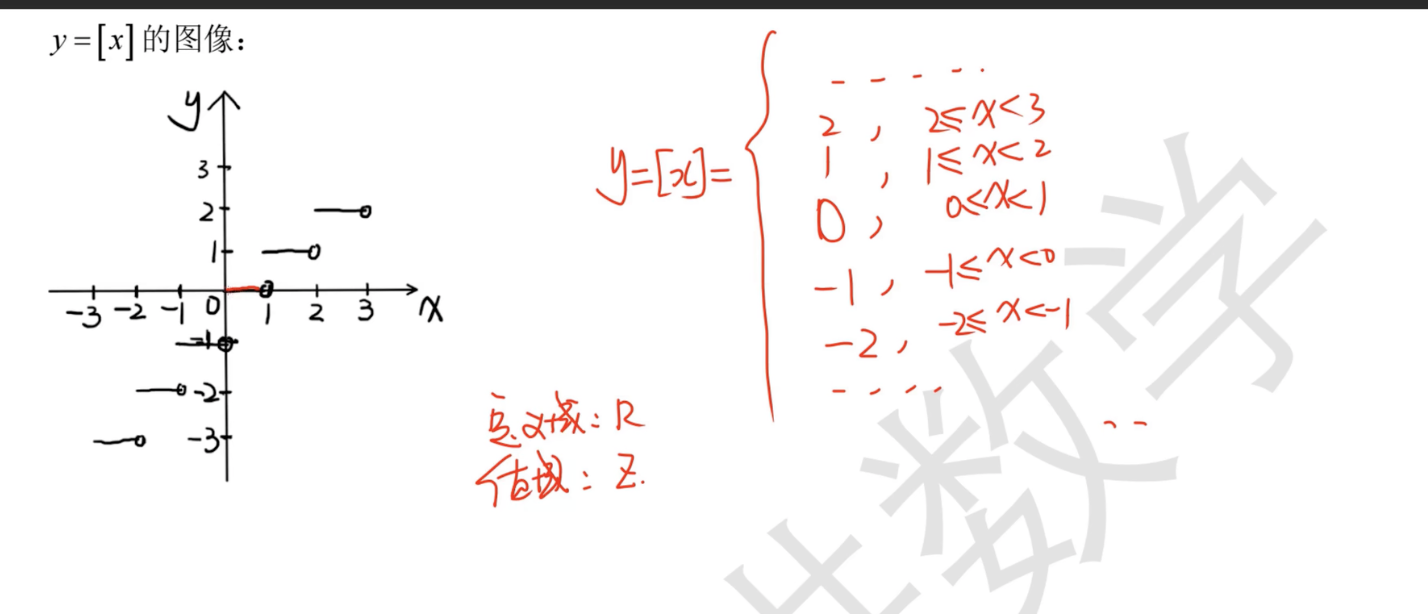 y=[x]的图像：
y
3
2
1
-3 -2 -1 0 1 2 3 x
-1
-2
-3
y=[x]=
- - - - -
2 , 2≤x<3
1 , 1≤x<2
0 , 0≤x<1
-1 , -1≤x<0
-2 , -2≤x<-1
- - - -
定义域：R
值域：Z.
数学